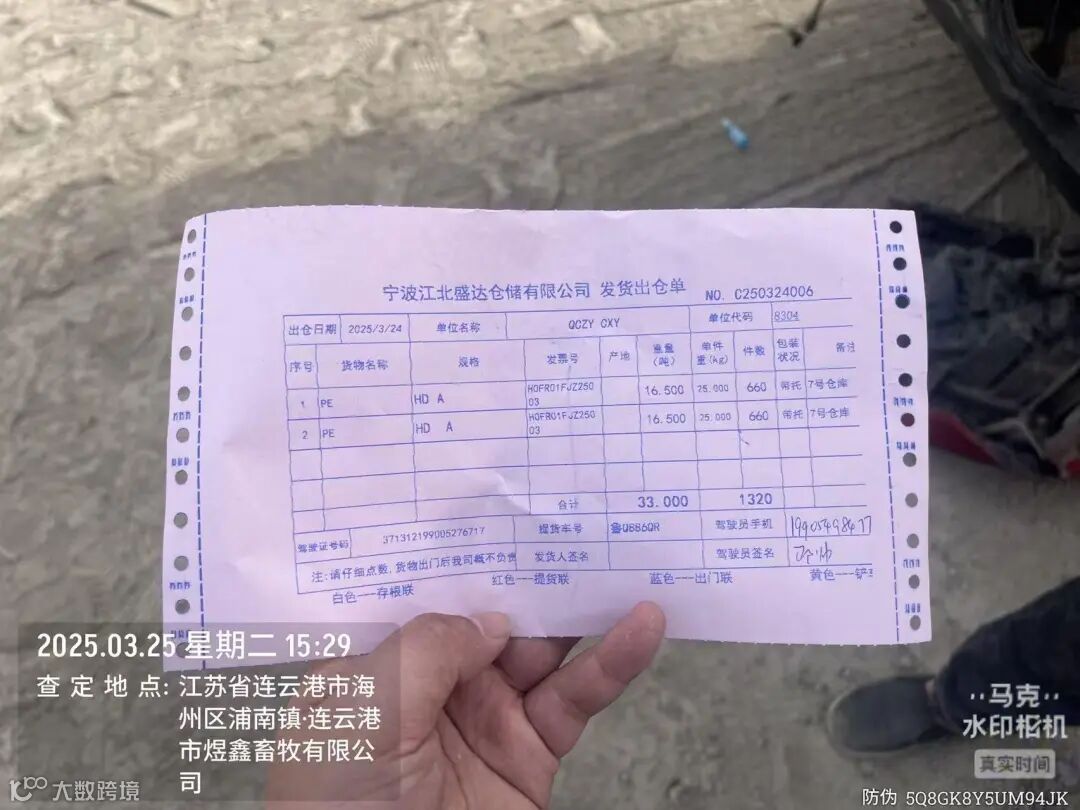 宁波江北盛达仓储有限公司 发货出仓单 NO. C250324006
出仓日期 2025/3/24 单位名称 QCZY CXY 单位代码 8304
序号 货物名称 规格 发票号 产地 重量(吨) 单件重(kg) 件数 包装状况 备注
1 PE HD A HOFR01FJZ25003 16.500 25.000 660 带托 7号仓库
2 PE HD A HOFR01FJZ25003 16.500 25.000 660 带托 7号仓库
合计 33.000 1320
驾驶证号码 371312199005276717 提货车号 鲁Q886QR 驾驶员手机
注:请仔细点数,货物出门后我司概不负责 发货人签名 驾驶员签名
白色---存根联 红色---提货联 蓝色---出门联 黄色---铲
2025.03.25 星期二 15:29
查定地点: 江苏省连云港市海
州区浦南镇·连云港
市煜鑫畜牧有限公
司
大数跨境
马克
水印相机
真实时间
防伪 5Q8GK8Y5UM94JK